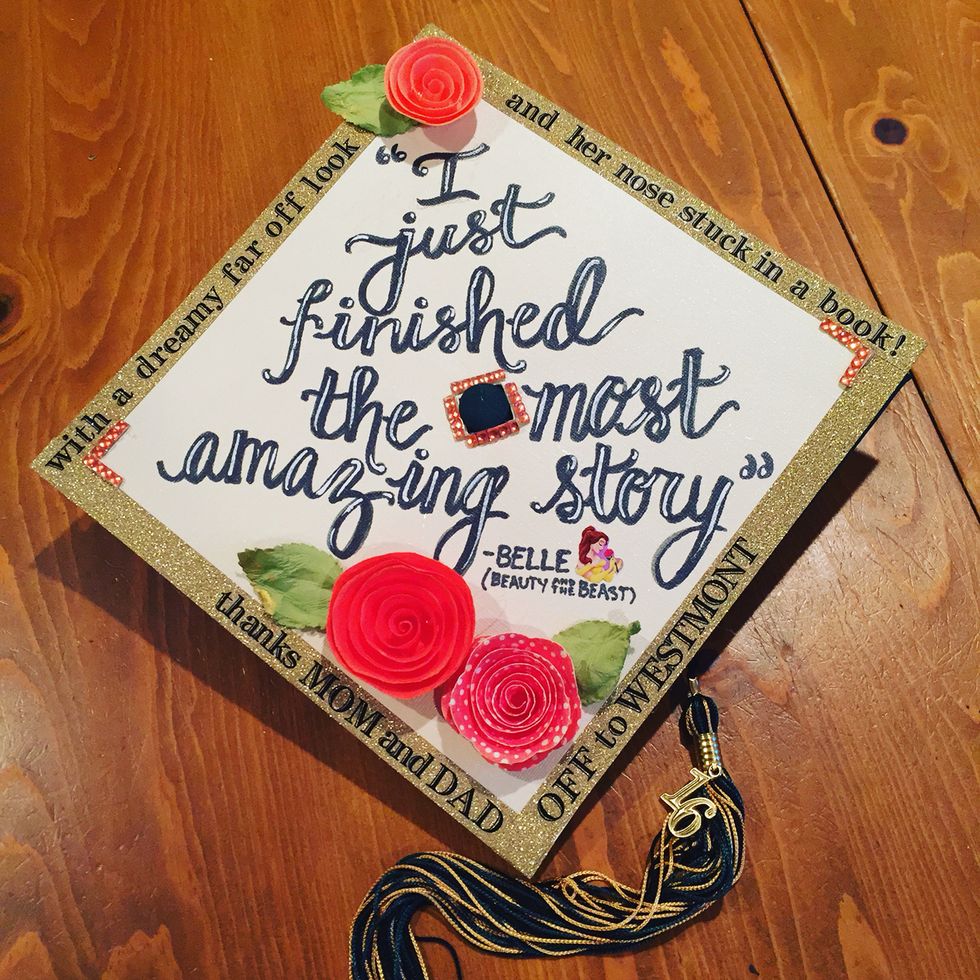 with a dreamy far off look
and her nose stuck in a book!
“I
just
finished
the most
amazing story”
-BELLE
(BEAUTY AND THE BEAST)
thanks MOM and DAD
OFF to WESTMONT
16